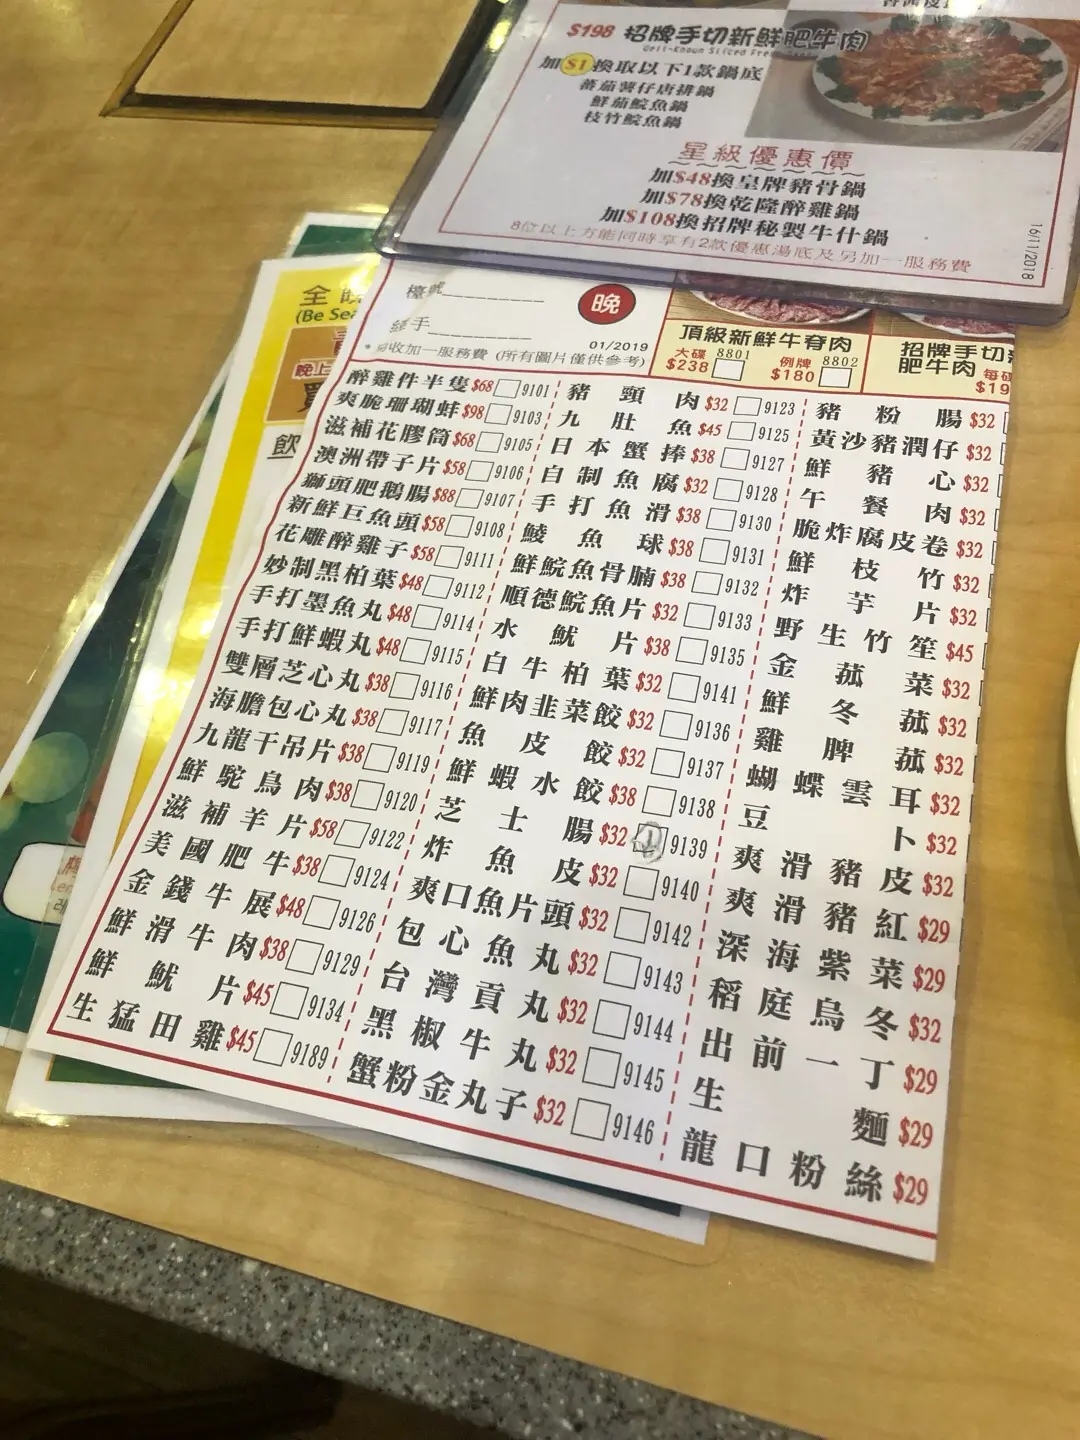 $198 招牌手切新鮮肥牛肉
Well-Known Sliced Fresh
加$1換取以下1款鍋底
蕃茄薯仔唐排鍋
鮮茄鯇魚鍋
枝竹鯇魚鍋
星級優惠價
加$48換皇牌豬骨鍋
加$78換乾隆醉雞鍋
加$108換招牌秘製牛什鍋
8位以上方能同時享有2款優惠湯底及另加一服務費
16/11/2018
全
(Be Sea
晚上
買
飲
檯號
經手
晚
01/2019
*另收加一服務費 (所有圖片僅供參考)
頂級新鮮牛脊肉
大碟 8801 $238
例牌 8802 $180
招牌手切
肥牛肉 每碟
$19
醉雞件半隻 $68 9101
爽脆珊瑚蚌 $98 9103
滋補花膠筒 $68 9105
澳洲帶子片 $58 9106
獅頭肥鵝腸 $88 9107
新鮮巨魚頭 $58 9108
花雕醉雞子 $58 9111
妙制黑柏葉 $48 9112
手打墨魚丸 $48 9114
手打鮮蝦丸 $48 9115
雙層芝心丸 $38 9116
海膽包心丸 $38 9117
九龍干吊片 $38 9119
鮮鴕鳥肉 $38 9120
滋補羊片 $58 9122
美國肥牛 $38 9124
金錢牛展 $48 9126
鮮滑牛肉 $38 9129
鮮魷片 $45 9134
生猛田雞 $45 9189
豬頸肉 $32 9123
九肚魚 $45 9125
日本蟹捧 $38 9127
自制魚腐 $32 9128
手打魚滑 $38 9130
鯪魚球 $38 9131
鮮鯇魚骨腩 $38 9132
順德鯇魚片 $32 9133
水魷片 $38 9135
白牛柏葉 $32 9141
鮮肉韭菜餃 $32 9136
魚皮餃 $32 9137
鮮蝦水餃 $38 9138
芝士腸 $32 9139
炸魚皮 $32 9140
爽口魚片頭 $32 9142
包心魚丸 $32 9143
台灣貢丸 $32 9144
黑椒牛丸 $32 9145
蟹粉金丸子 $32 9146
豬粉腸 $32
黃沙豬潤仔 $32
鮮豬心 $32
午餐肉 $32
脆炸腐皮卷 $32
鮮枝竹 $32
炸芋片 $32
野生竹笙 $45
金菰菜 $32
鮮冬菰 $32
雞脾菰 $32
蝴蝶雲耳 $32
豆卜 $32
爽滑豬皮 $32
爽滑豬紅 $29
深海紫菜 $29
稻庭烏冬 $32
出前一丁 $29
生麵 $29
龍口粉絲 $29